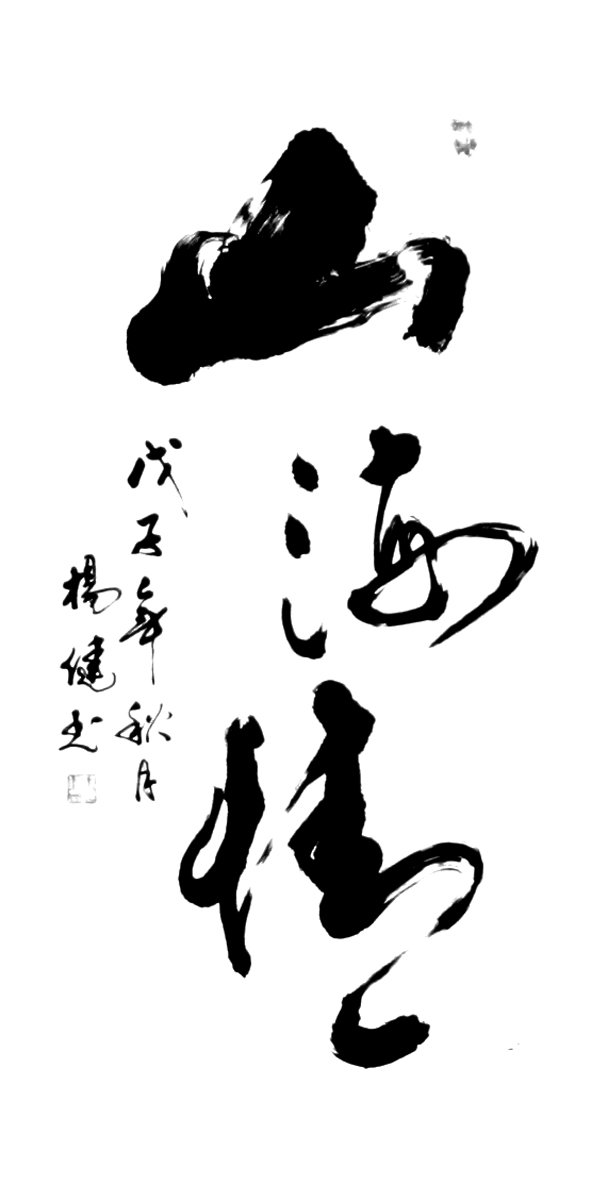 山海情
戊子年秋月
楊健书